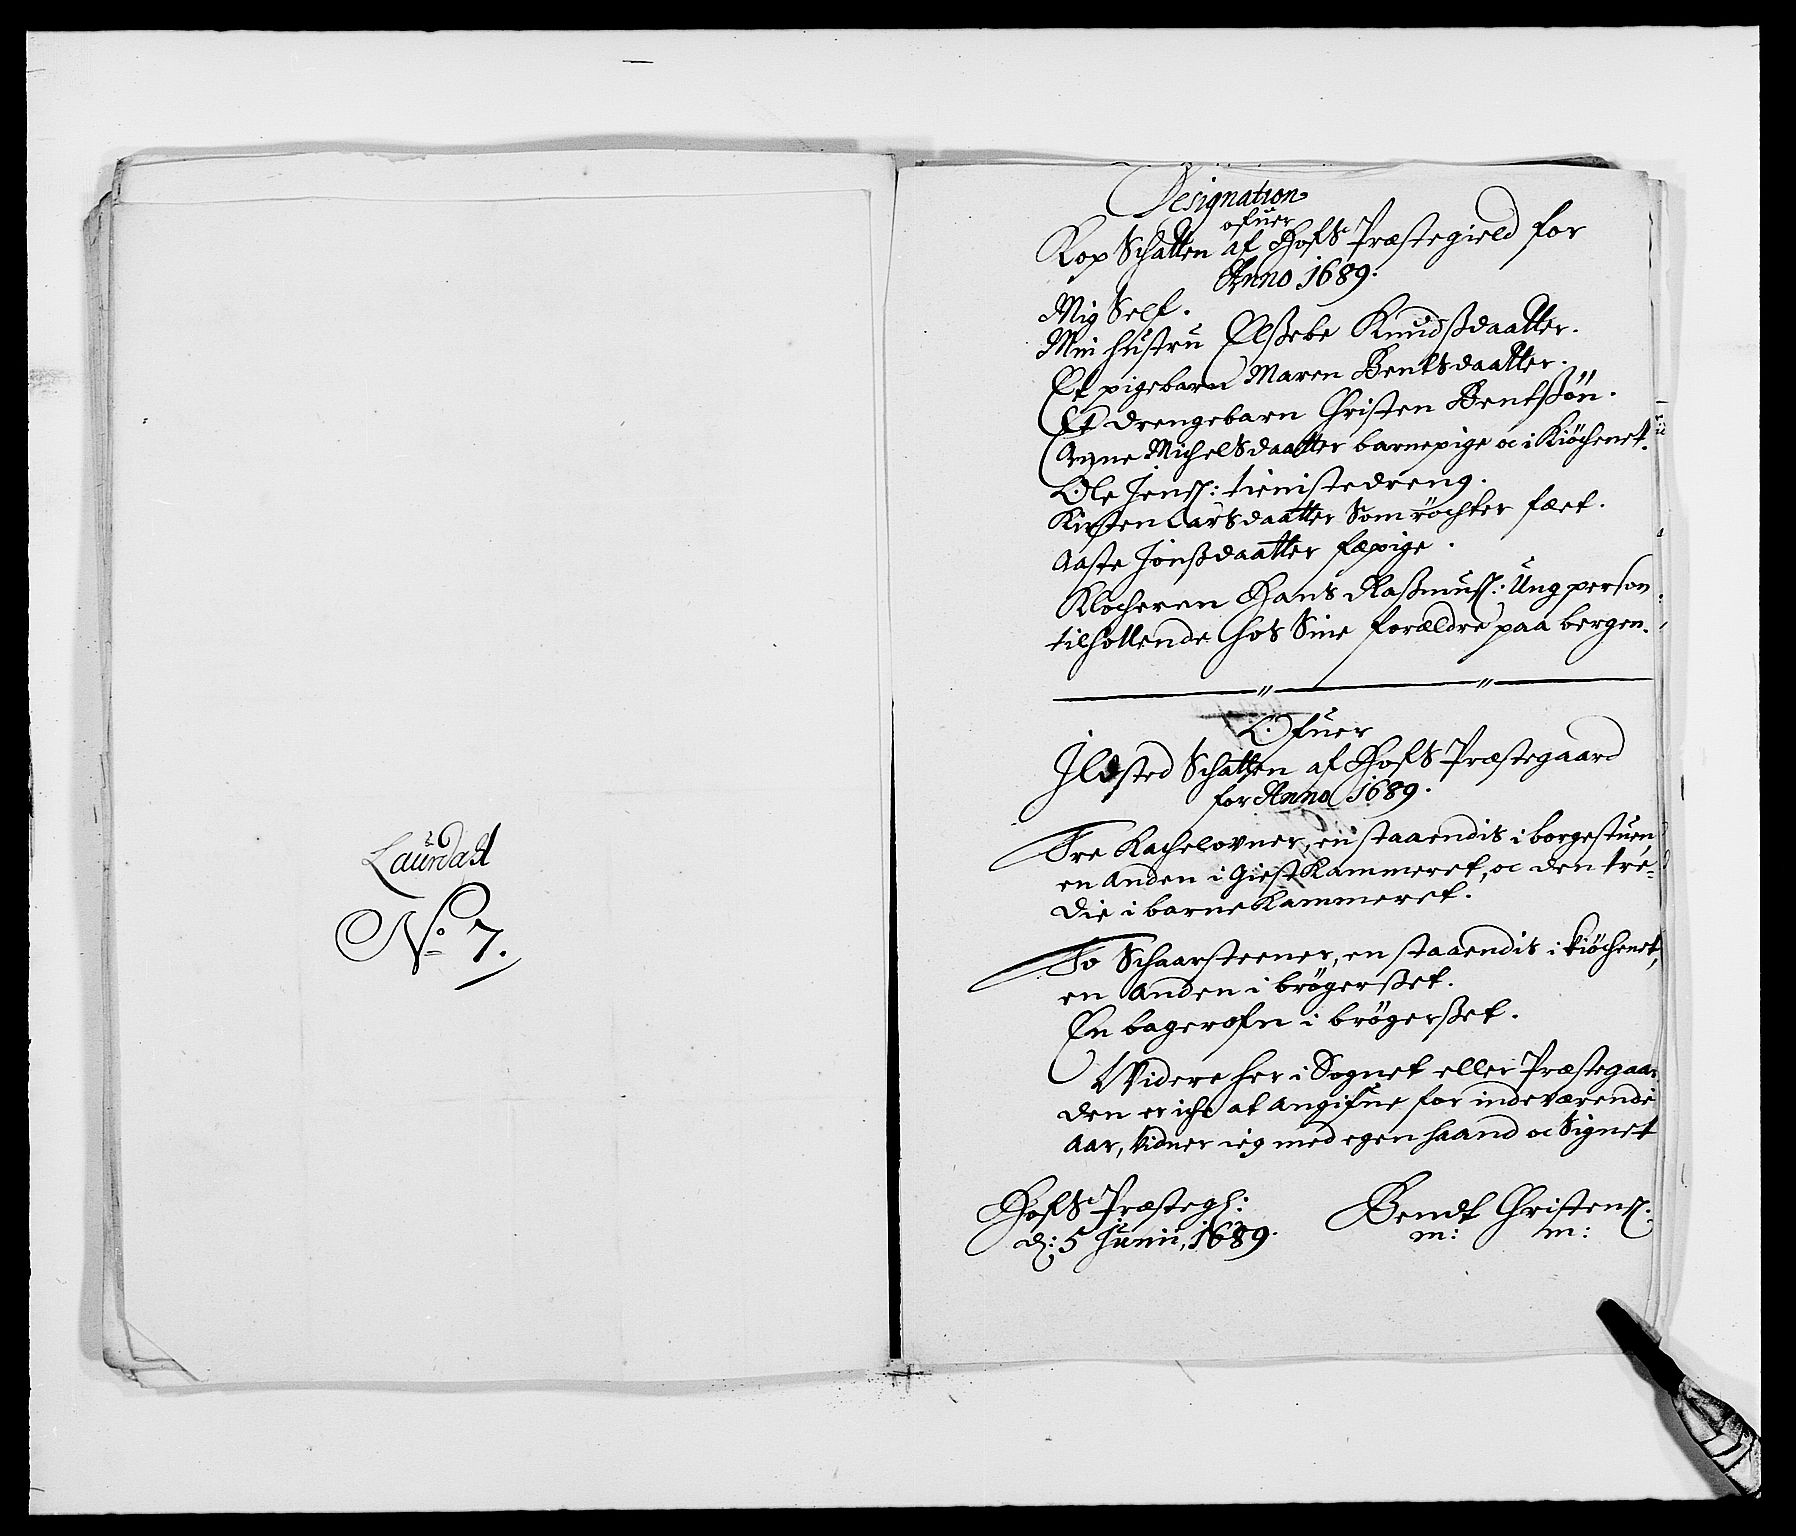 Laurdahl
No 7.
Designation
ofuer
Kop Schatten af Hofs Præstegield for
Anno 1689.
Mig Self.
Min hustru Elßebe Knudßdaatter.
Et pigebarn Maren Bentsdaatter.
Et drengebarn Christen Bentßøn.
Anne Michelsdaatter barnepige oc i Kiøchenet.
Ole Jenß: tienistedreng.
Kirsten Larsdaatter Som røchter fæet.
Aaste Jonßdaatter fæpige.
Klocheren Hans Raßmuß: Ung person
tilhollende hos Sine forældre paa bergen.
Ofuer
Ildsted Schatten af Hofs Præstegaard
for Anno 1689.
Tre Kachelovner, en staaendis i borgestuen,
en anden i Giest Kammeret, oc den tre-
die i barne Kammeret.
To Schaarsteener, en staaendis i kiøchenet,
en anden i brøgerßet.
En bagerofn i brøgerßet.
Widere her i Sognet eller Præstegaar
den er iche at angifue for indeværende
Aar, vidner ieg med egen haand oc Signet
Hofs Præstegl:
d: 5 Junii, 1689.
Bendt Christenß:
m: m: